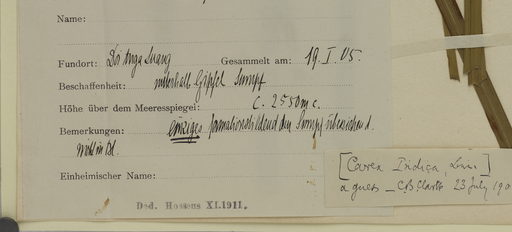 Name:
Fundort: Doi Anga Luang Gesammelt am: 19. I. 05.
Beschaffenheit: unterhalb Gipfel Sumpf
Höhe über dem Meeresspiegel: c. 2550 m c.
Bemerkungen: einziges formationsbildend den Sumpf überziehend.
Einheimischer Name:
Ded. Hosseus XI.1911.
[Carex Indica, Linn.]
a guess _ C.B. Clarke 23 July 190